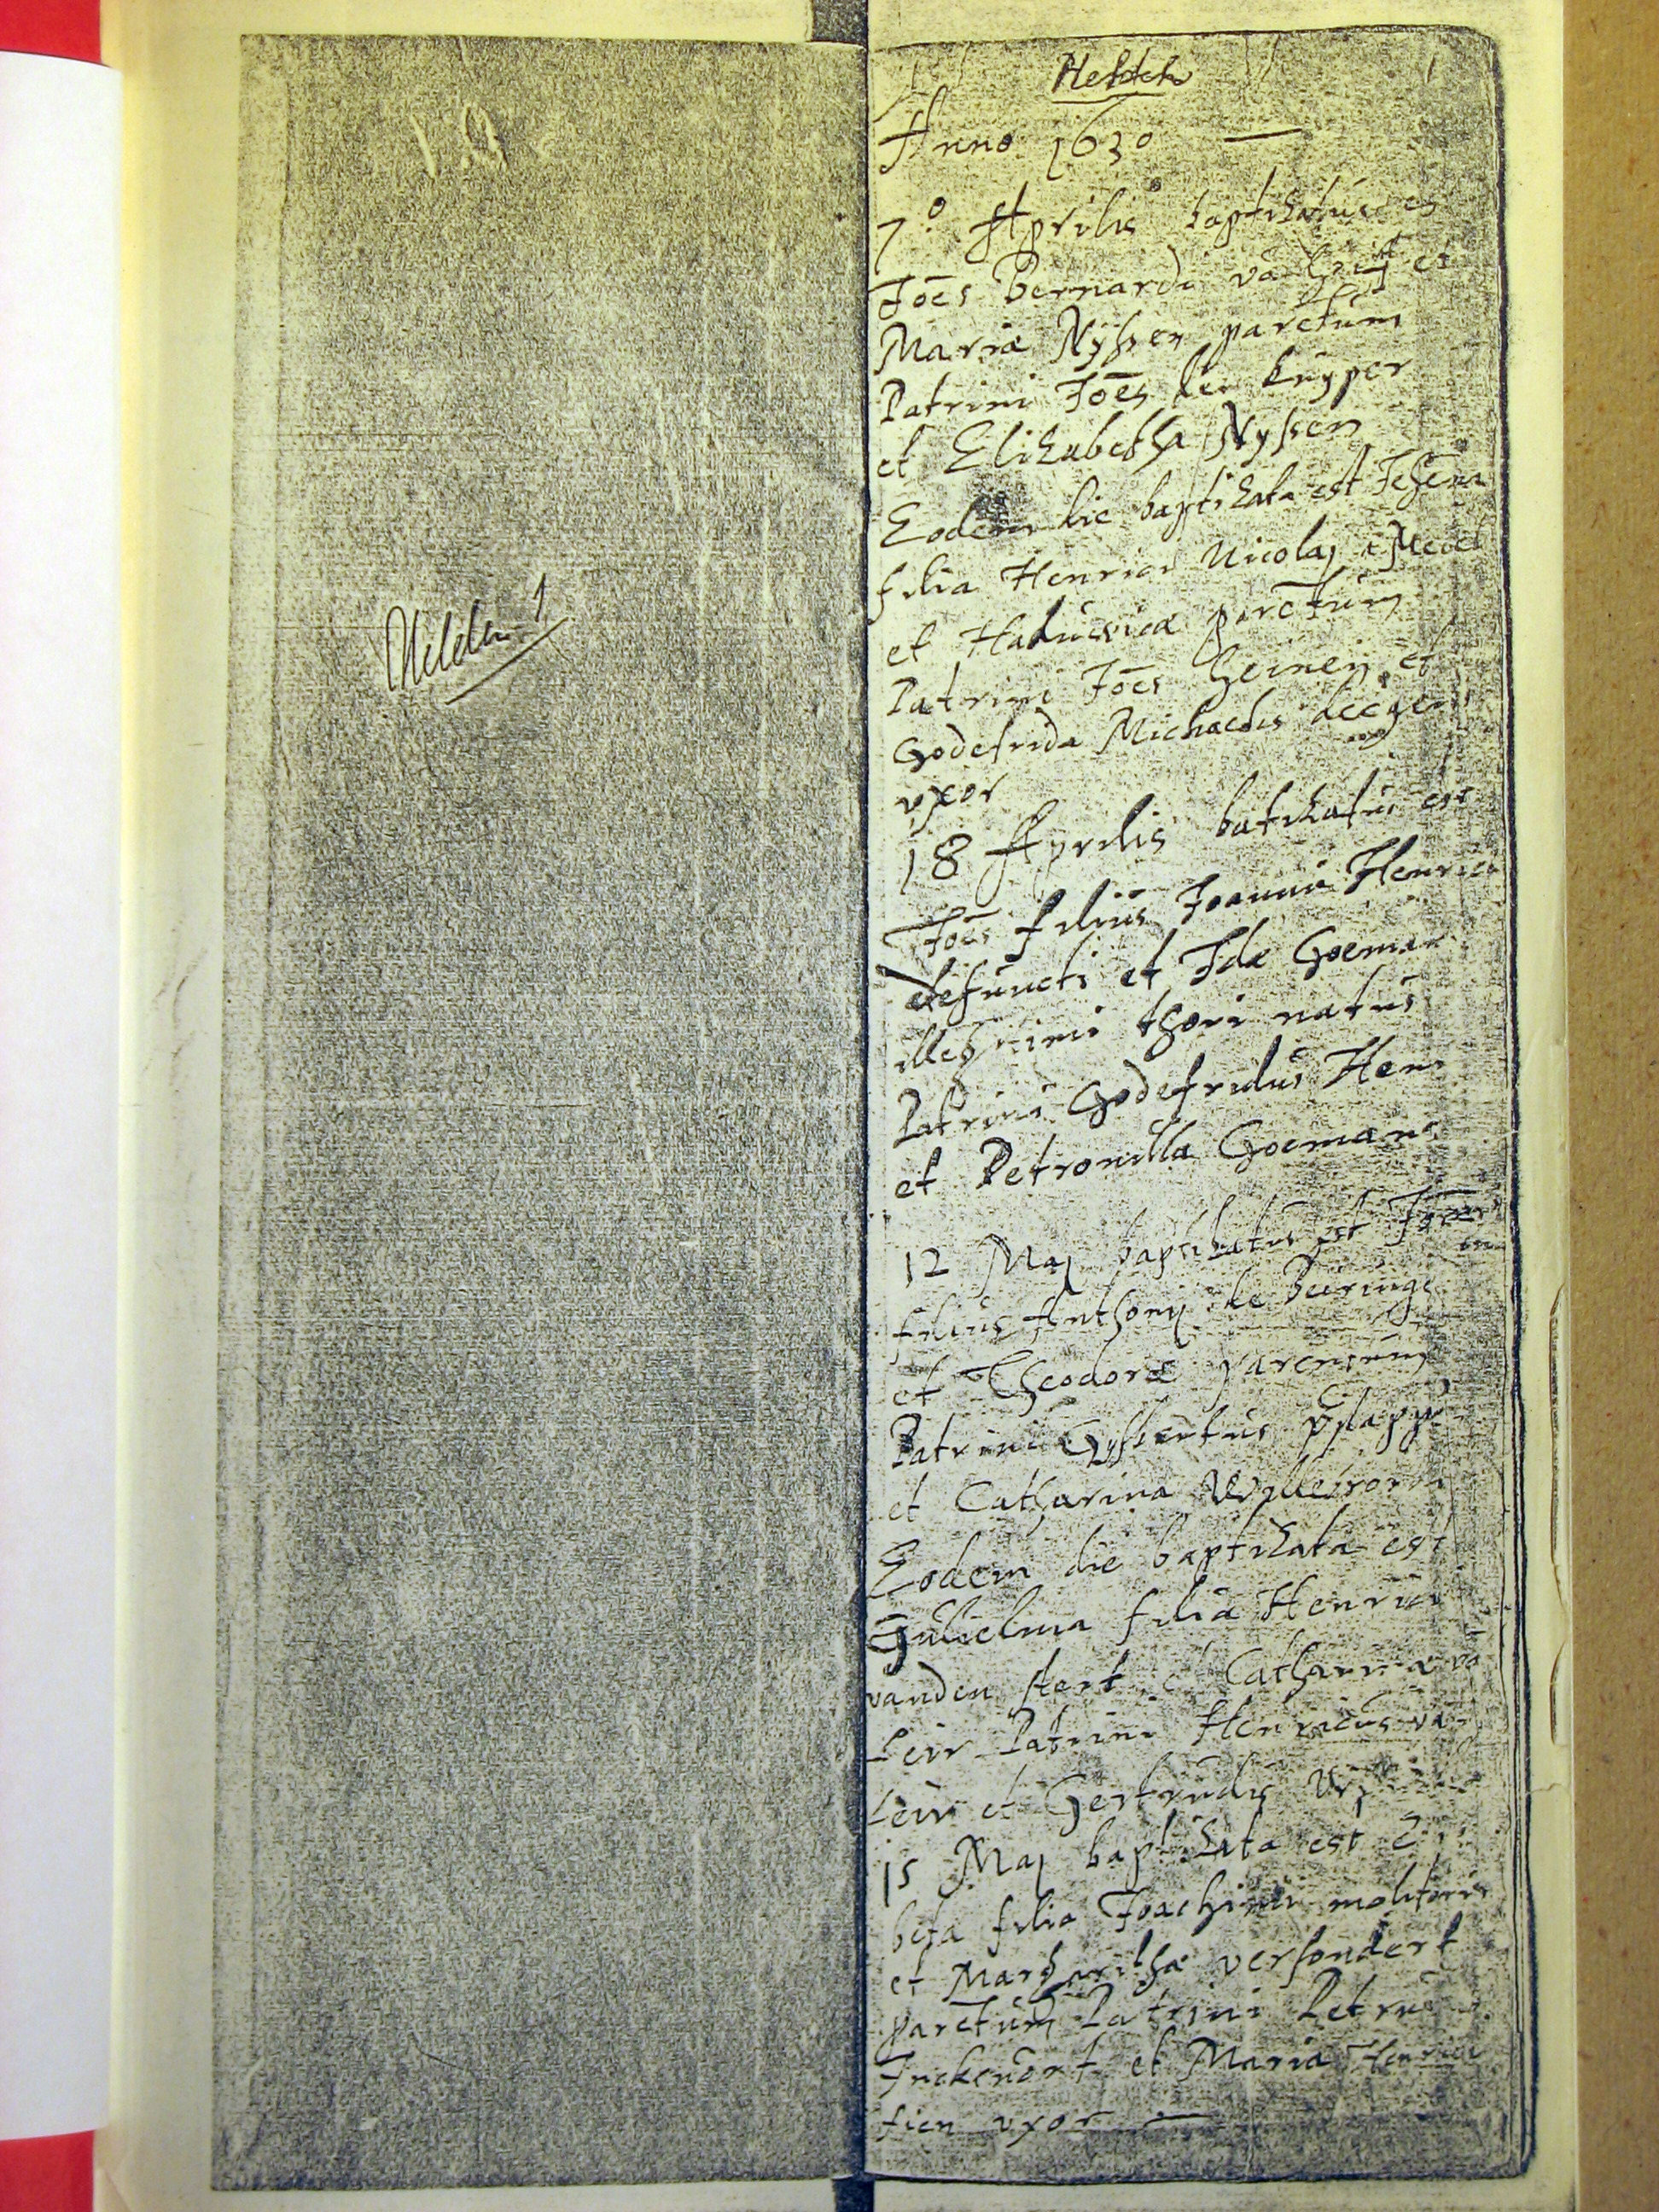 Helden 1
Helden
Anno 1630
7º Aprilis baptizatus est
Joēs Bernardi vā et
Mariæ Nyssen parētum
Patrini Joēs den kuyper
et Elizabetha Nyssen
Eodem die baptizata est
filia Henrici Nicolaj
et Haduwicæ parētum
Patrini Joēs heinen et
Godefrida Michaelis
vxor
18 Aprilis batizatus est
Joēs filius Joannis Henrici
defuncti et Idæ Goemans
illegitimi thori natus
Patrini Godefridus Hen
et Petronilla Goemans
12 Maj baptizatus est
filius Anthonij de Beeringe
et Theodoræ parentum
Patrini Gysbertus
et Catharina
Eodem die baptizata est
Gulielma filia Henrici
vanden stert et Catharinæ vā
Leir Patrini Henricus vā
Leir et Gertrudis
15 Maj baptizata est
beta filia Joachimi molitoris
et Margarithæ versondert
parētum Patrini Petrus
et Maria Henrici
tien vxor